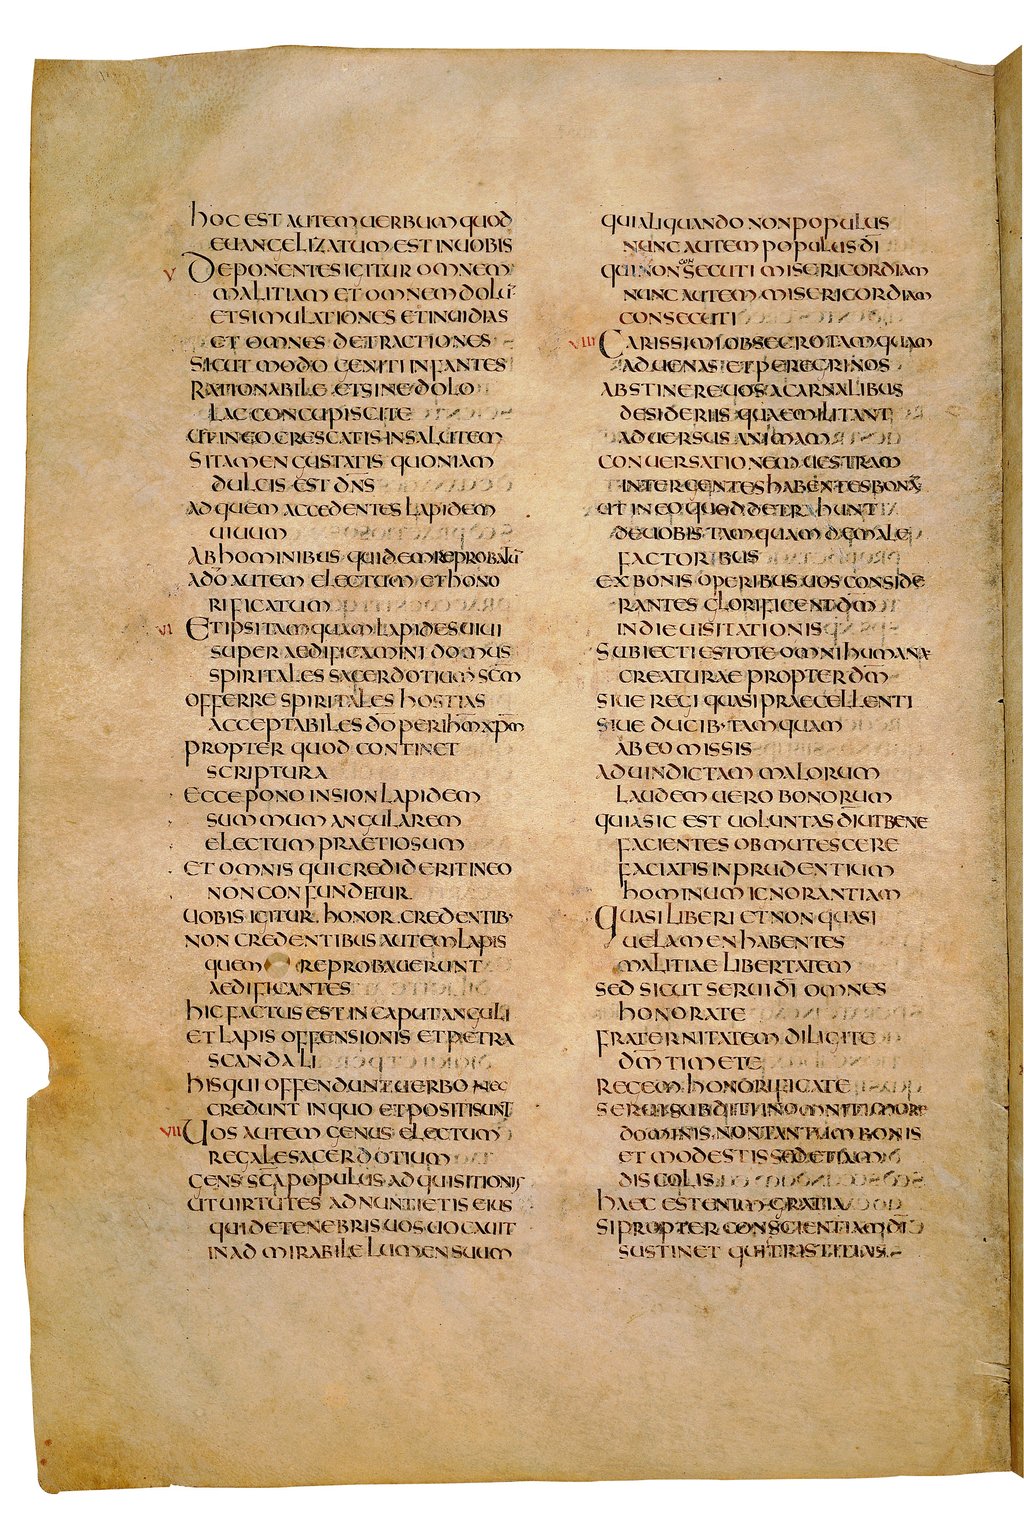 hOC EST AUTEM UERBUM QUOD
EUANGELIZATUM EST IN UOBIS
V DEPONENTES IGITUR OMNEM
MALITIAM ET OMNEM DOLŪ
ET SIMULATIONES ET INUIDIAS
ET OMNES DETRACTIONES
SICUT MODO GENITI INFANTES
RATIONABILE ET SINE DOLO
LAC CONCUPISCITE
UT IN EO CRESCATIS IN SALUTEM
SI TAMEN GUSTATIS QUONIAM
DULCIS EST DN̄S
AD QUEM ACCEDENTES LAPIDEM
UIUUM
AB HOMINIBUS QUIDEM REPROBATŪ
A DŌ AUTEM ELECTUM ET HONO
RIFICATUM
VI ET IPSI TAMQUAM LAPIDES UIUI
SUPERAEDIFICAMINI DOMUS
SPIRITALES SACERDOTIUM SC̄M
OFFERRE SPIRITALES HOSTIAS
ACCEPTABILES DO PER IHM XP̄M
PROPTER QUOD CONTINET
SCRIPTURA
ECCE PONO IN SION LAPIDEM
SUMMUM ANGULAREM
ELECTUM PRAETIOSUM
ET OMNIS QUI CREDIDERIT IN EO
NON CONFUNDETUR
UOBIS IGITUR HONOR CREDENTIB·
NON CREDENTIBUS AUTEM LAPIS
QUEM REPROBAUERUNT
AEDIFICANTES
HIC FACTUS EST IN CAPUT ANGULI
ET LAPIS OFFENSIONIS ET PETRA
SCANDALI
HIS QUI OFFENDUNT UERBO NEC
CREDUNT IN QUO ET POSITI SUNT
VII UOS AUTEM GENUS ELECTUM
REGALE SACERDOTIUM
GENS SCA POPULUS ADQUISITIONIS
UT UIRTUTES ADNUNTIETIS EIUS
QUI DE TENEBRIS UOS UOCAUIT
IN ADMIRABILE LUMEN SUUM
QUI ALIQUANDO NON POPULUS
NUNC AUTEM POPULUS DĪ
QUI NON CONSECUTI MISERICORDIAM
NUNC AUTEM MISERICORDIAM
CONSECUTI
VIII CARISSIMI OBSECRO TAMQUAM
ADUENAS ET PEREGRINOS
ABSTINERE UOS A CARNALIBUS
DESIDERIIS QUAE MILITANT
ADUERSUS ANIMAM
CONUERSATIONEM UESTRAM
INTER GENTES HABENTES BONĀ
UT IN EO QUOD DETR HUNT
DE UOBIS TAMQUAM DE MALE
FACTORIBUS
EX BONIS OPERIBUS UOS CONSIDE
RANTES GLORIFICENT DM̄
IN DIE UISITATIONIS
SUBIECTI ESTOTE OMNI HUMANA
CREATURAE PROPTER DM̄
SIUE REGI QUASI PRAECELLENTI
SIUE DUCIB· TAMQUAM
AB EO MISSIS
AD UINDICTAM MALORUM
LAUDEM UERO BONORUM
QUIA SIC EST UOLUNTAS DĪ UT BENE
FACIENTES OBMUTESCERE
FACIATIS INPRUDENTIUM
HOMINUM IGNORANTIAM
QUASI LIBERI ET NON QUASI
UELAMEN HABENTES
MALITIAE LIBERTATEM
SED SICUT SERUI DĪ OMNES
HONORATE
FRATERNITATEM DILIGITE
DM̄ TIMETE
REGEM HONORIFICATE
SERUI SUBDITI IN OMNI TIMORE
DOMINIS NON TANTUM BONIS
ET MODESTIS SED ETIAM
DISCOLIS
HAEC EST ENIM GRATIA
SI PROPTER CONSCIENTIAM DĪ
SUSTINET QUI TRISTITIAS